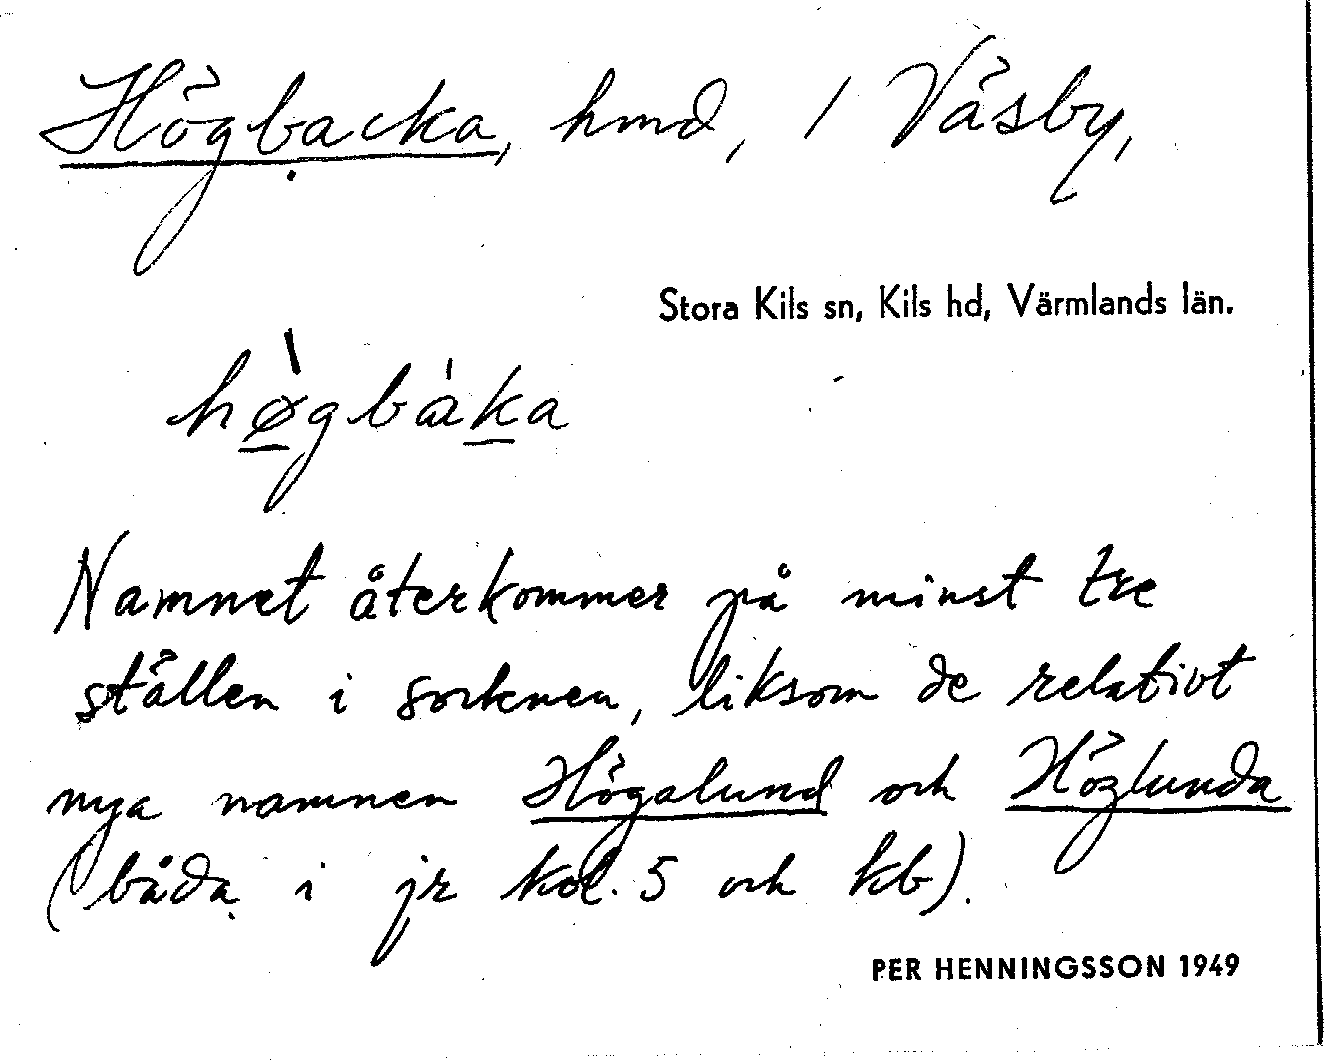 Högbacka, hmd, 1 Väsby,
Stora Kils sn, Kils hd, Värmlands län.
hø̀gbàka
Namnet återkommer på minst tre
ställen i socknen, liksom de relativt
nya namnen Högalund och Höglunda
(båda i jr kol. 5 och kb).
PER HENNINGSSON 1949